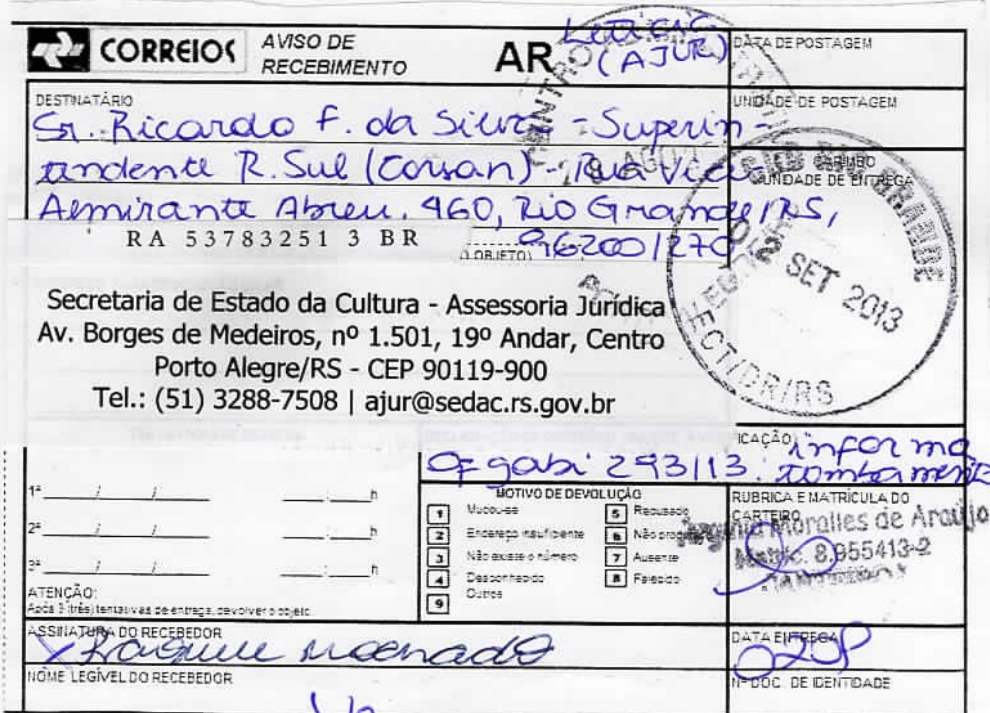 Letícia
(AJUR)
CORREIOS
AVISO DE
RECEBIMENTO
AR
DATA DE POSTAGEM
DESTINATÁRIO
UNIDADE DE POSTAGEM
Sr. Ricardo F. da Silva - Superin-
tendente R. Sul (Corsan) - Rua Vice
Almirante Abreu, 460, Rio Grande/RS,
96200/270
CARIMBO
UNIDADE DE ENTREGA
RIO GRANDE
02 SET 2013
ECT/DR/RS
RA 53783251 3 BR
OBJETO)
Secretaria de Estado da Cultura - Assessoria Jurídica
Av. Borges de Medeiros, nº 1.501, 19º Andar, Centro
Porto Alegre/RS - CEP 90119-900
Tel.: (51) 3288-7508 | ajur@sedac.rs.gov.br
ICAÇÃO) informa
Of gabi 293/13. tombamento
1ª ___/___/___ ___:___h
2ª ___/___/___ ___:___h
3ª ___/___/___ ___:___h
ATENÇÃO:
Após 3 (três) tentativas de entrega, devolver o objeto.
MOTIVO DE DEVOLUÇÃO
1 Mudou-se
2 Endereço insuficiente
3 Não existe o número
4 Desconhecido
9 Outros
5 Recusado
6 Não
7 Ausente
8 Falecido
RUBRICA E MATRÍCULA DO
CARTEIRO
Moralles de Araujo
Matric. 8.955413-2
ASSINATURA DO RECEBEDOR
Machado
DATA ENTREGA
NOME LEGÍVEL DO RECEBEDOR
Nº DOC. DE IDENTIDADE